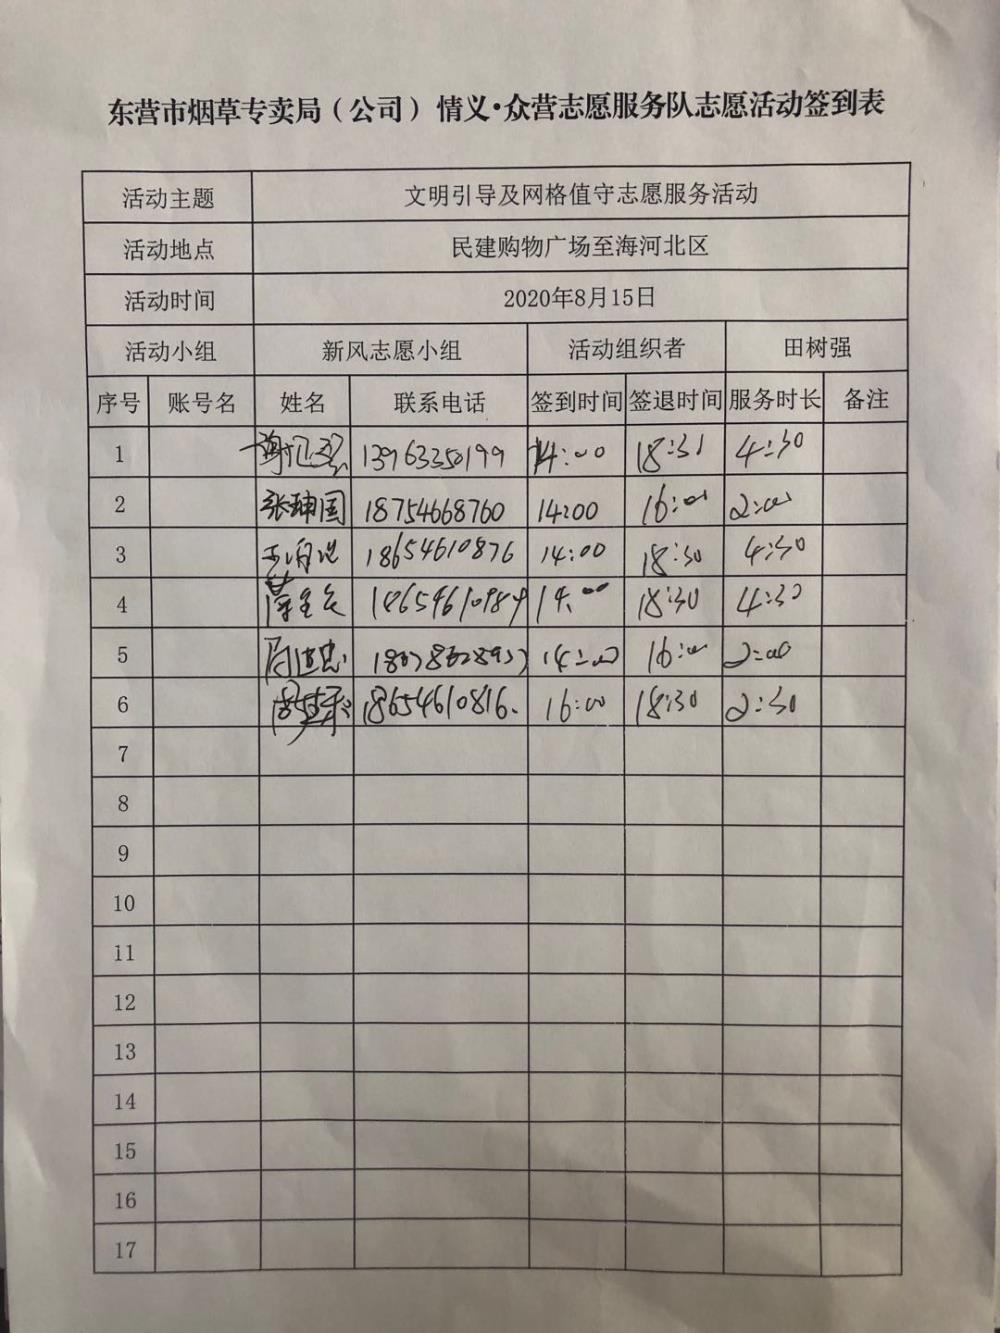 东营市烟草专卖局（公司）情义·众营志愿服务队志愿活动签到表
活动主题 文明引导及网格值守志愿服务活动
活动地点 民建购物广场至海河北区
活动时间 2020年8月15日
活动小组 新风志愿小组 活动组织者 田树强
序号 账号名 姓名 联系电话 签到时间 签退时间 服务时长 备注
1 13963350199 14:00 18:31 4:30
2 张珅国 18754668760 14:00 16:00 2:00
3 18654610876 14:00 18:30 4:30
4 14:00 18:30 4:30
5 14:00 16:00 2:00
6 18654610816. 16:00 18:30 2:30
7
8
9
10
11
12
13
14
15
16
17